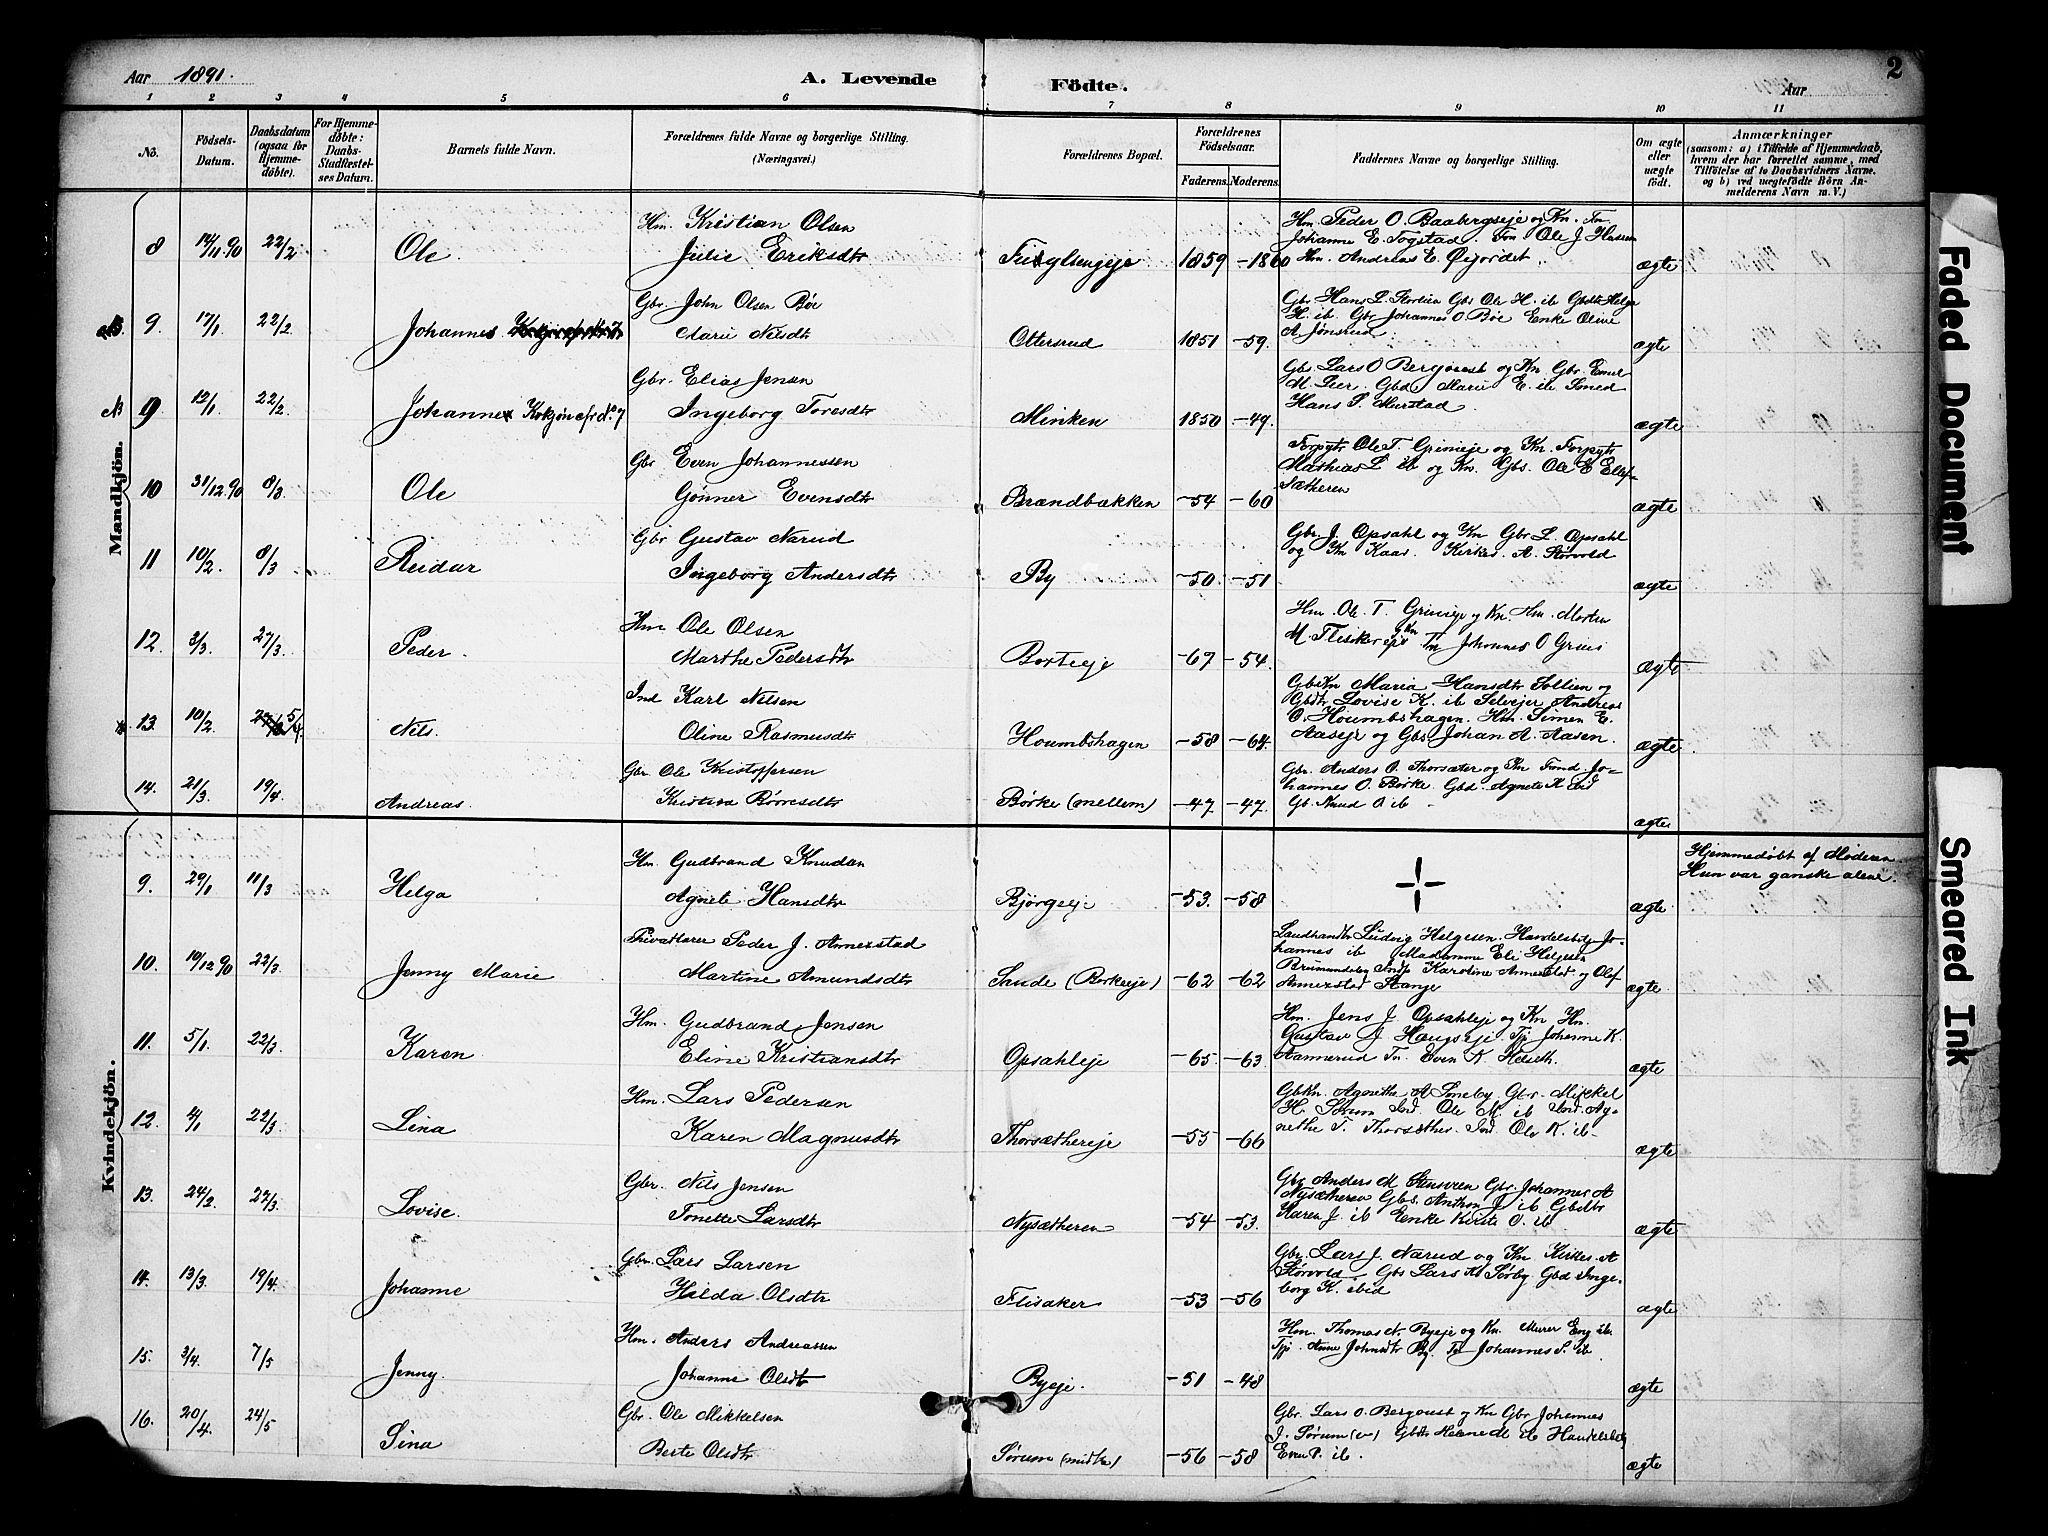 Aar 1891.
A. Levende Födte.
Aar
2
1 2 3 4 5 6 7 8 9 10 11
No.
Födsels-
Datum.
Daabsdatum
(ogsaa for
Hjemme-
döbte).
For Hjemme-
döbte:
Daabs-
Stadfæstel-
ses Datum.
Barnets fulde Navn.
Forældrenes fulde Navne og borgerlige Stilling.
(Næringsvei.)
Forældrenes Bopæl.
Forældrenes
Födselsaar.
Faderens. Moderens.
Faddernes Navne og borgerlige Stilling.
Om ægte
eller
uægte
födt.
Anmærkninger
(saasom: a) i Tilfælde af Hjemmedaab,
hvem der har forrettet samme, med
Tilföielse af to Daabsvidners Navne.
og b) ved uægtefödte Börn An-
melderens Navn m. V.)
Mandkjön.
8 14/11.90 22/2 Ole.
Hm. Kristian Olsen
Julie Eriksdtr
1859 -1860
Hm. Peder O. Baabergseje og Kn. Tm
Johanne E. Togstad. Fm Ole J.
Hm. Andreas E. Øfjordet
ægte
9. 17/1 22/2 Johannes
Gbr. John Olsen Bøe
Marie Nilsdtr
Ottersrud 1851 -59.
Gbr. Hans L. Gbs Ole H. ib
H. ib Gbr Johannes O. Bøe Enke Oline
A Jønsrud
ægte
9 12/1 22/2 Johanne
Gbr. Elias Jensen
Ingeborg Toresdtr
Minken 1850 -49.
Gbr. Lars O Bergsvest og Kn Gbr. Emil
M. Gbd Marie E. ib Smed
Hans P. Murstad.
ægte
10 31/12.90 8/3 Ole
Gbr Even Johannessen
Gønner Evensdtr
Brandbakken -54 -60
Forpgtr Ole T. Grimeje og Kn. Forpgtr
Mathias L. ib og Kn. Gbs. Ole E
Sætheren
ægte
11 10/2. 8/3 Reidar
Gbr Gustav Narud
Ingeborg Andersdtr
By -50 -51
Gbr. J. Opsahl og Kn Gbr L. Opsahl
og Kn Kaas. Kirkes. A. Størvold
ægte
12. 3/3. 27/3. Peder.
Hm Ole Olsen
Marthe Pedersdtr
Borteje -67 -54.
Hm. Ole T. Grimeje og Kn. Hm. Morten
M. Flisakereje og Kn Tm Johannes O Grime
Ægte
13. 10/2. 5/4. Nils.
Ind Karl Nilsen
Oline Rasmusdtr
Houmbshagen -58 -64.
GbrKn Maria Hansdtr Sollien og
Gbdtr Lovise K. ib Selvejer Andreas
O. Houmbshagen. Hm. Simen E.
Aaseje og Gbs. Johan A. Aasen.
ægte
14. 21/3. 19/4. Andreas.
Gbr. Ole Kristoffersen
Kristine
Børke (mellem) -47 -47.
Gbr. Anders O. Thorsæter og Kn Fmd. Jo-
hannes O. Børke Gbd. Agnete K ibid
Gb. Knud O ib -
ægte
Kvindekjön.
9. 29/1 11/3 Helga
Hm. Gudbrand Knudsn
Agnete Hansdtr
Bjørgeje -53. -58
ægte
Hjemmedøbt af Moderen
Hun var ganske alene.
10. 19/12 90 22/3. Jenny Marie
Privatlærer Peder J. Annexstad
Martine Amundsdtr
Saude (Borkeeje) -62 -62
Landhandlr Ludvig Helgesen. Handelsbtj Jo-
hannes ib Madamme Eli Helgesen
Brumundsby Karoline Annexstad og Olaf
Annexstad Stange
ægte.
11. 5/1. 22/3. Karen.
Hm. Gudbrand Jensen
Eline Kristiansdtr
Opsahleje -65 -63
Hm. Jens J. Opsahleje og Kn Hm.
Gustav J. Haugseje. Tp Johanne K.
Aannerud Tn. Even K.
ægte
12. 4/1 22/3. Lina
Hm. Lars Pedersen
Karen Magnusdtr
Thorsæthereje -55 -66
GbKn. Agnethe A Smeby Gbr. Mikkel
H. Sørum Ind. Ole M. ib Ind. Ag-
nethe T. Thorsæther. Ind. Ole K. ib-
ægte
13. 24/2. 22/3. Lovise.
Gbr. Nils Jensen
Tonette Larsdtr
Nysætheren -54 -53.
Gbr Anders M. Gbr. Johannes A
Nysætheren Gbs. Anthon J ib Gbdtr
Karen J. ib Enke Kirste O. ib
ægte
14. 13/3. 19/4. Johanne
Gbr. Lars Larsen
Hilda Olsdtr
Flisaker -53 -56
Gbr. Lars J. Narud og Kn Kirkes. A
Størvold Gbs Lars Sørby Gbd Inge-
borg K. ibid
ægte
15. 3/4. 7/5 Jenny.
Hm. Anders Andreassen
Johanne Olsdtr
Byeje. -51 -48
Hm. Thomas N. Byeje og Kn. Murer ib.
Tpi. Anne Johnsdtr By. Tn Johannes S. ib.
ægte
16. 20/4. 24/5 Sina
Gbr. Ole Mikkelsen
Berte Olsdtr
Sørum (midtre) -56 -58
Gbr. Lars O. Bergsvest og Kn Gbr Johannes
J. Sørum Gbdtr Helene M ib Handelsbtj
Even P. ib.
ægte
Faded Document
Smeared Ink